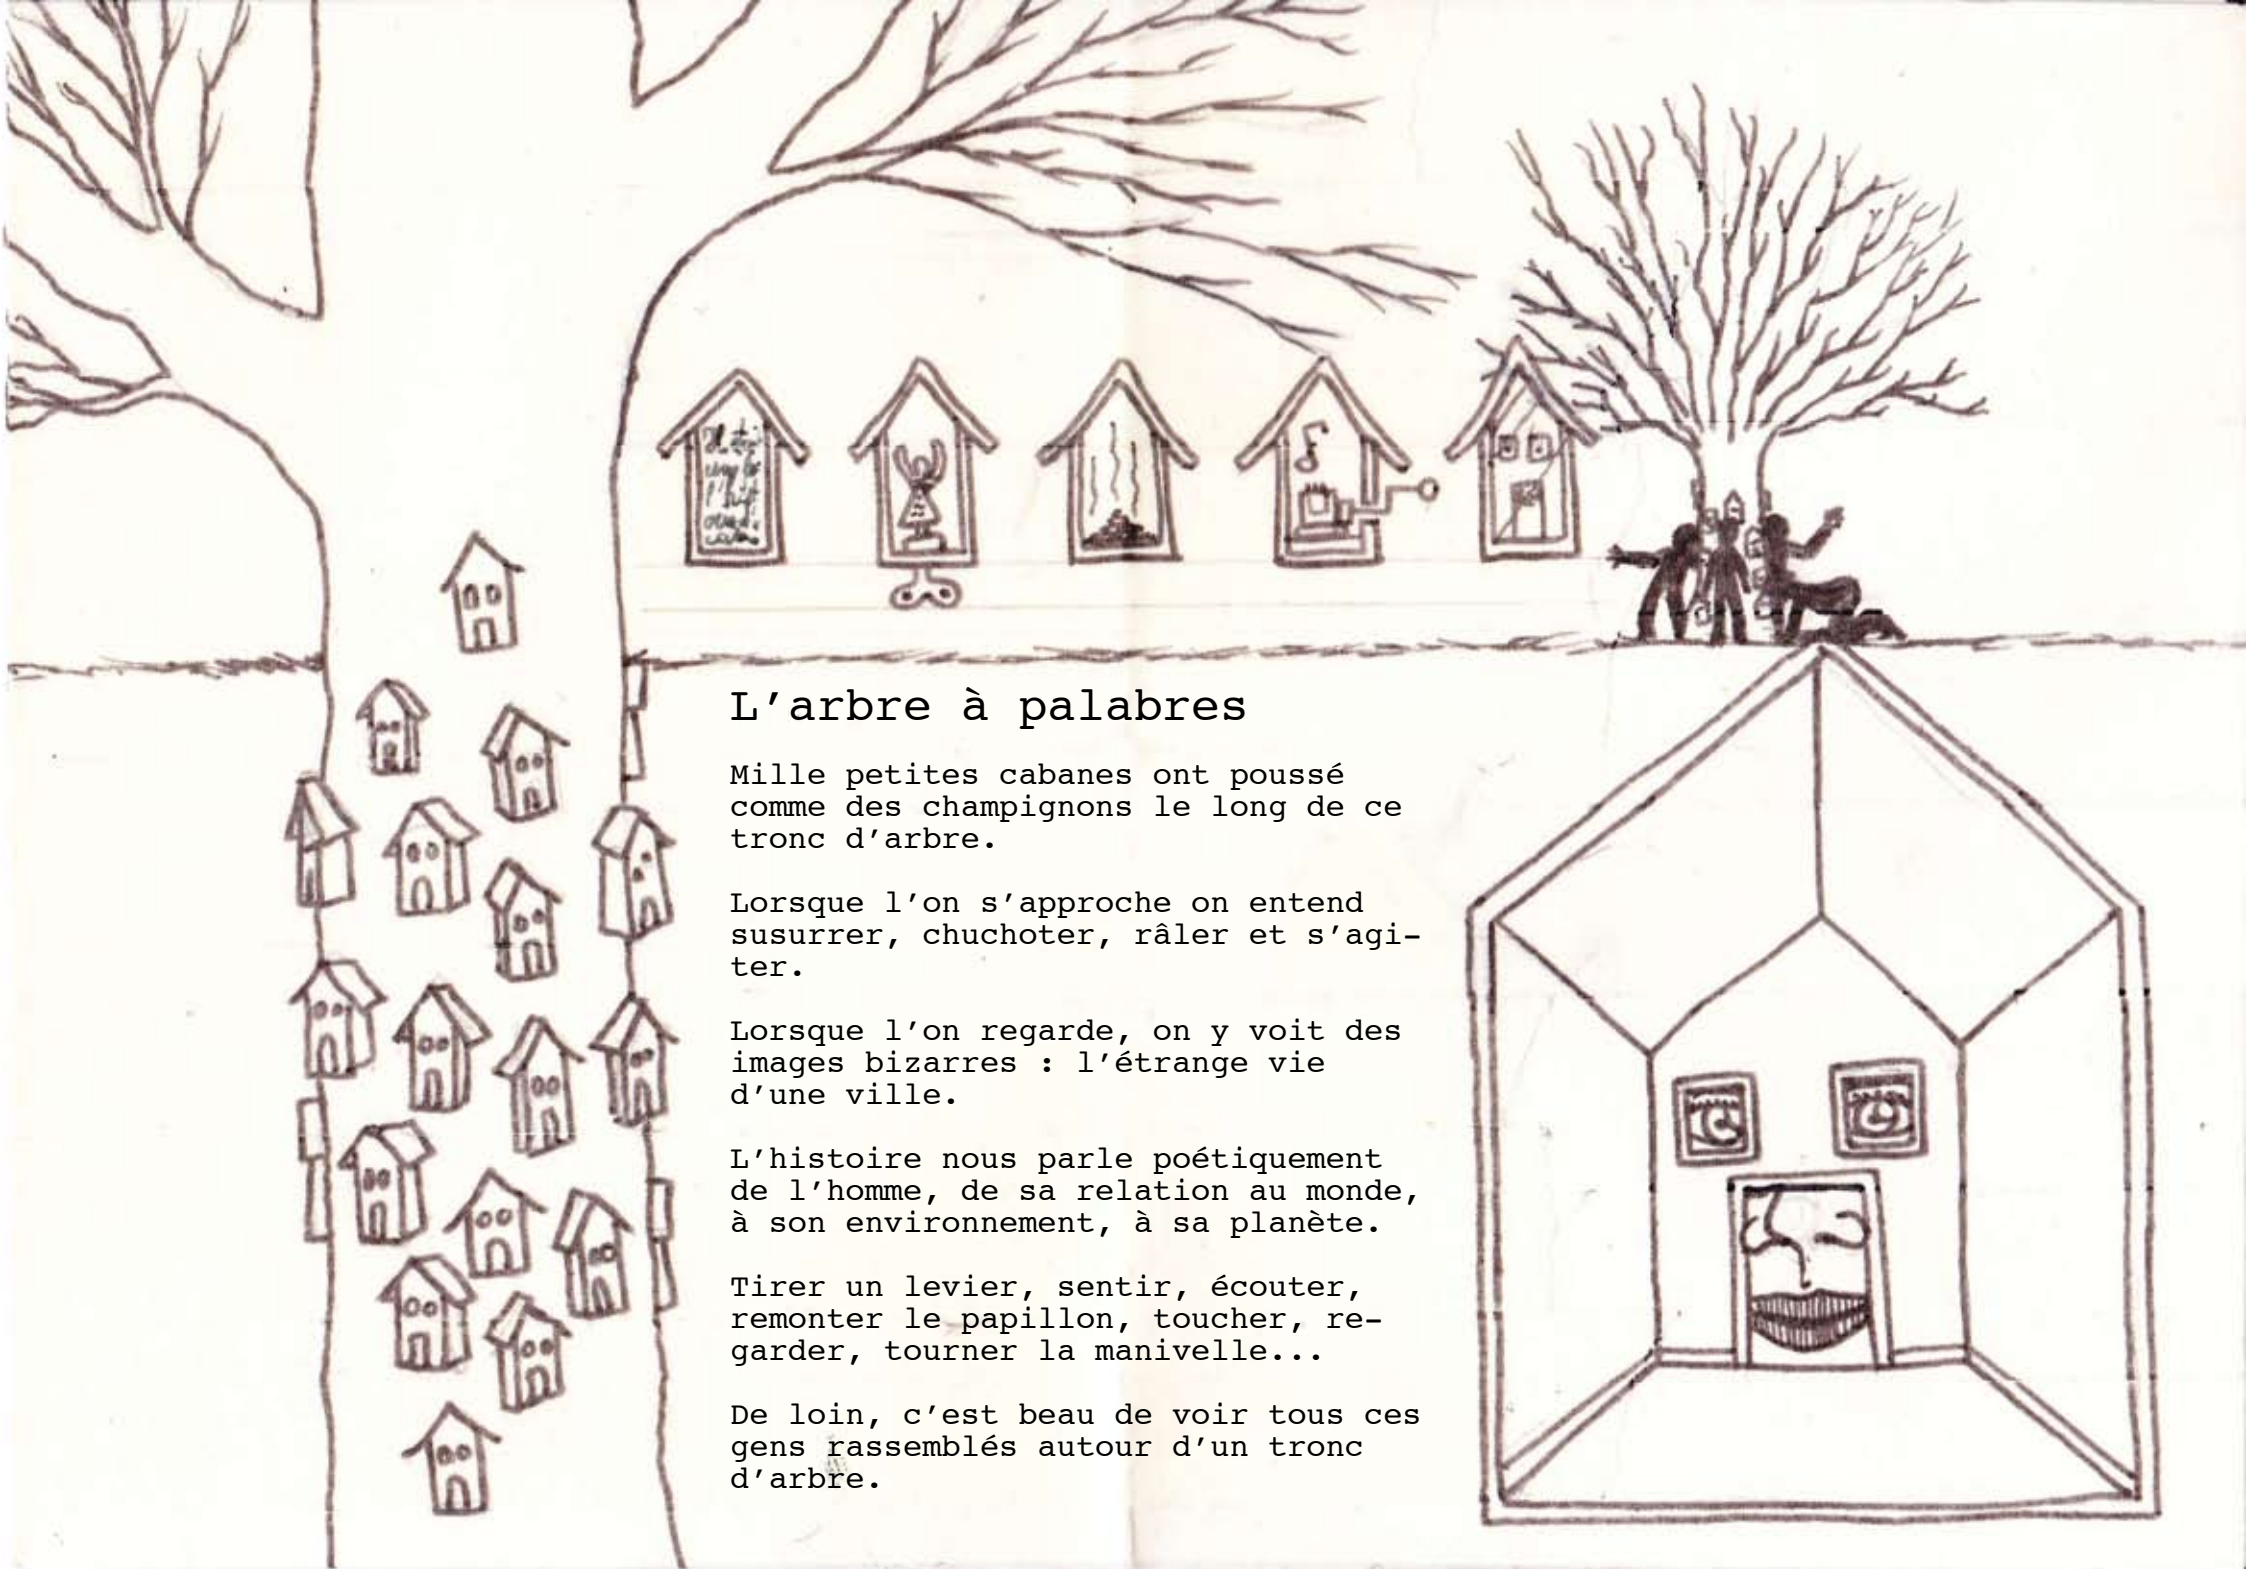 L’arbre à palabres
Mille petites cabanes ont poussé
comme des champignons le long de ce
tronc d’arbre.
Lorsque l’on s’approche on entend
susurrer, chuchoter, râler et s’agi-
ter.
Lorsque l’on regarde, on y voit des
images bizarres : l’étrange vie
d’une ville.
L’histoire nous parle poétiquement
de l’homme, de sa relation au monde,
à son environnement, à sa planète.
Tirer un levier, sentir, écouter,
remonter le papillon, toucher, re-
garder, tourner la manivelle...
De loin, c’est beau de voir tous ces
gens rassemblés autour d’un tronc
d’arbre.